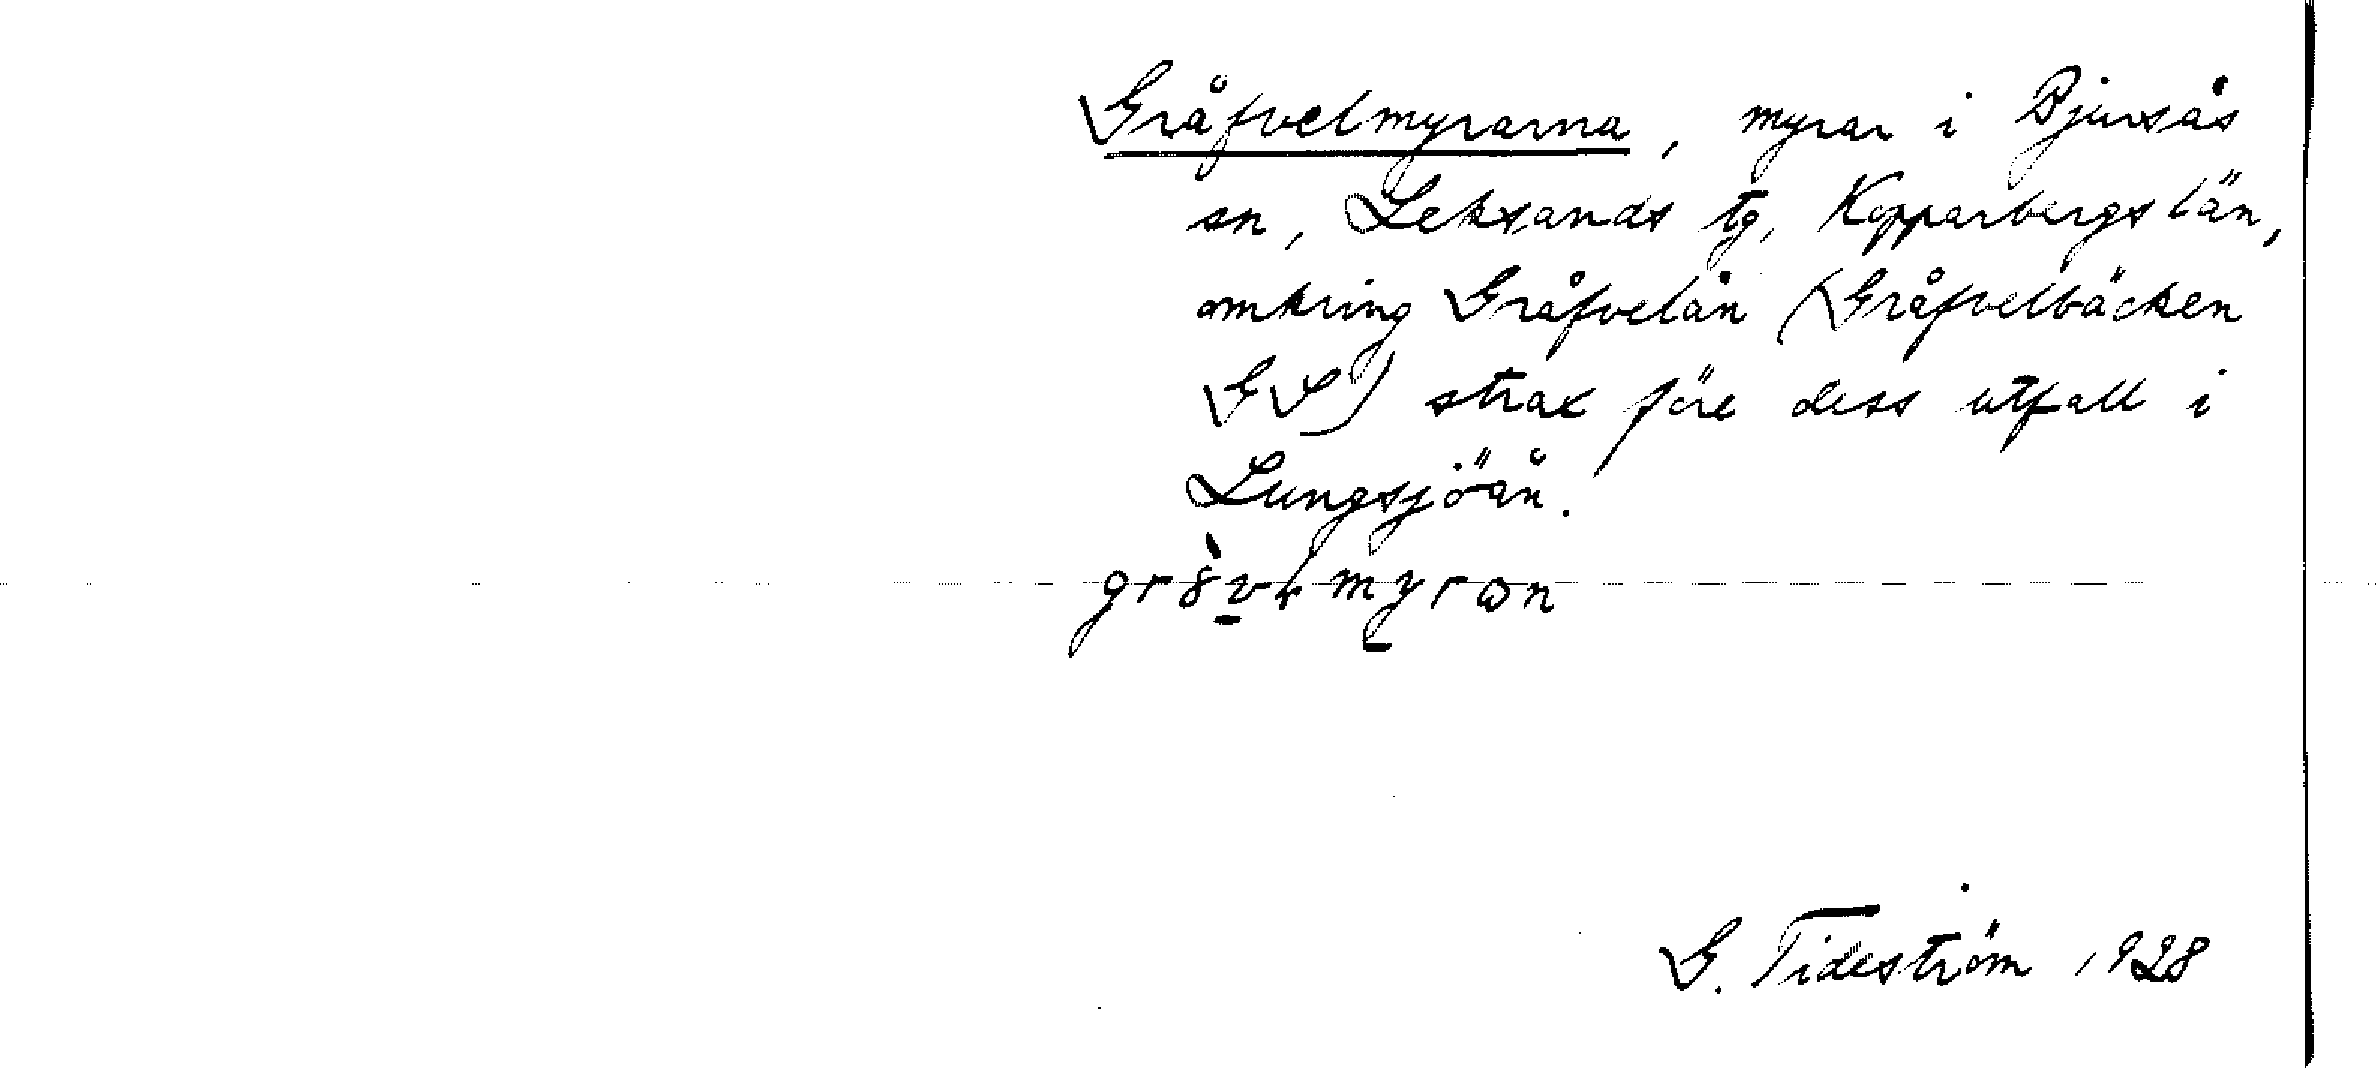 Gråfvelmyrarna, myrar i Bjursås
sn, Leksands tg, Kopparbergs län,
omkring Gråfvelån (Gråfvelbäcken
GS) strax före dess utfall i
Lungsjöån.
G. Tideström 1928